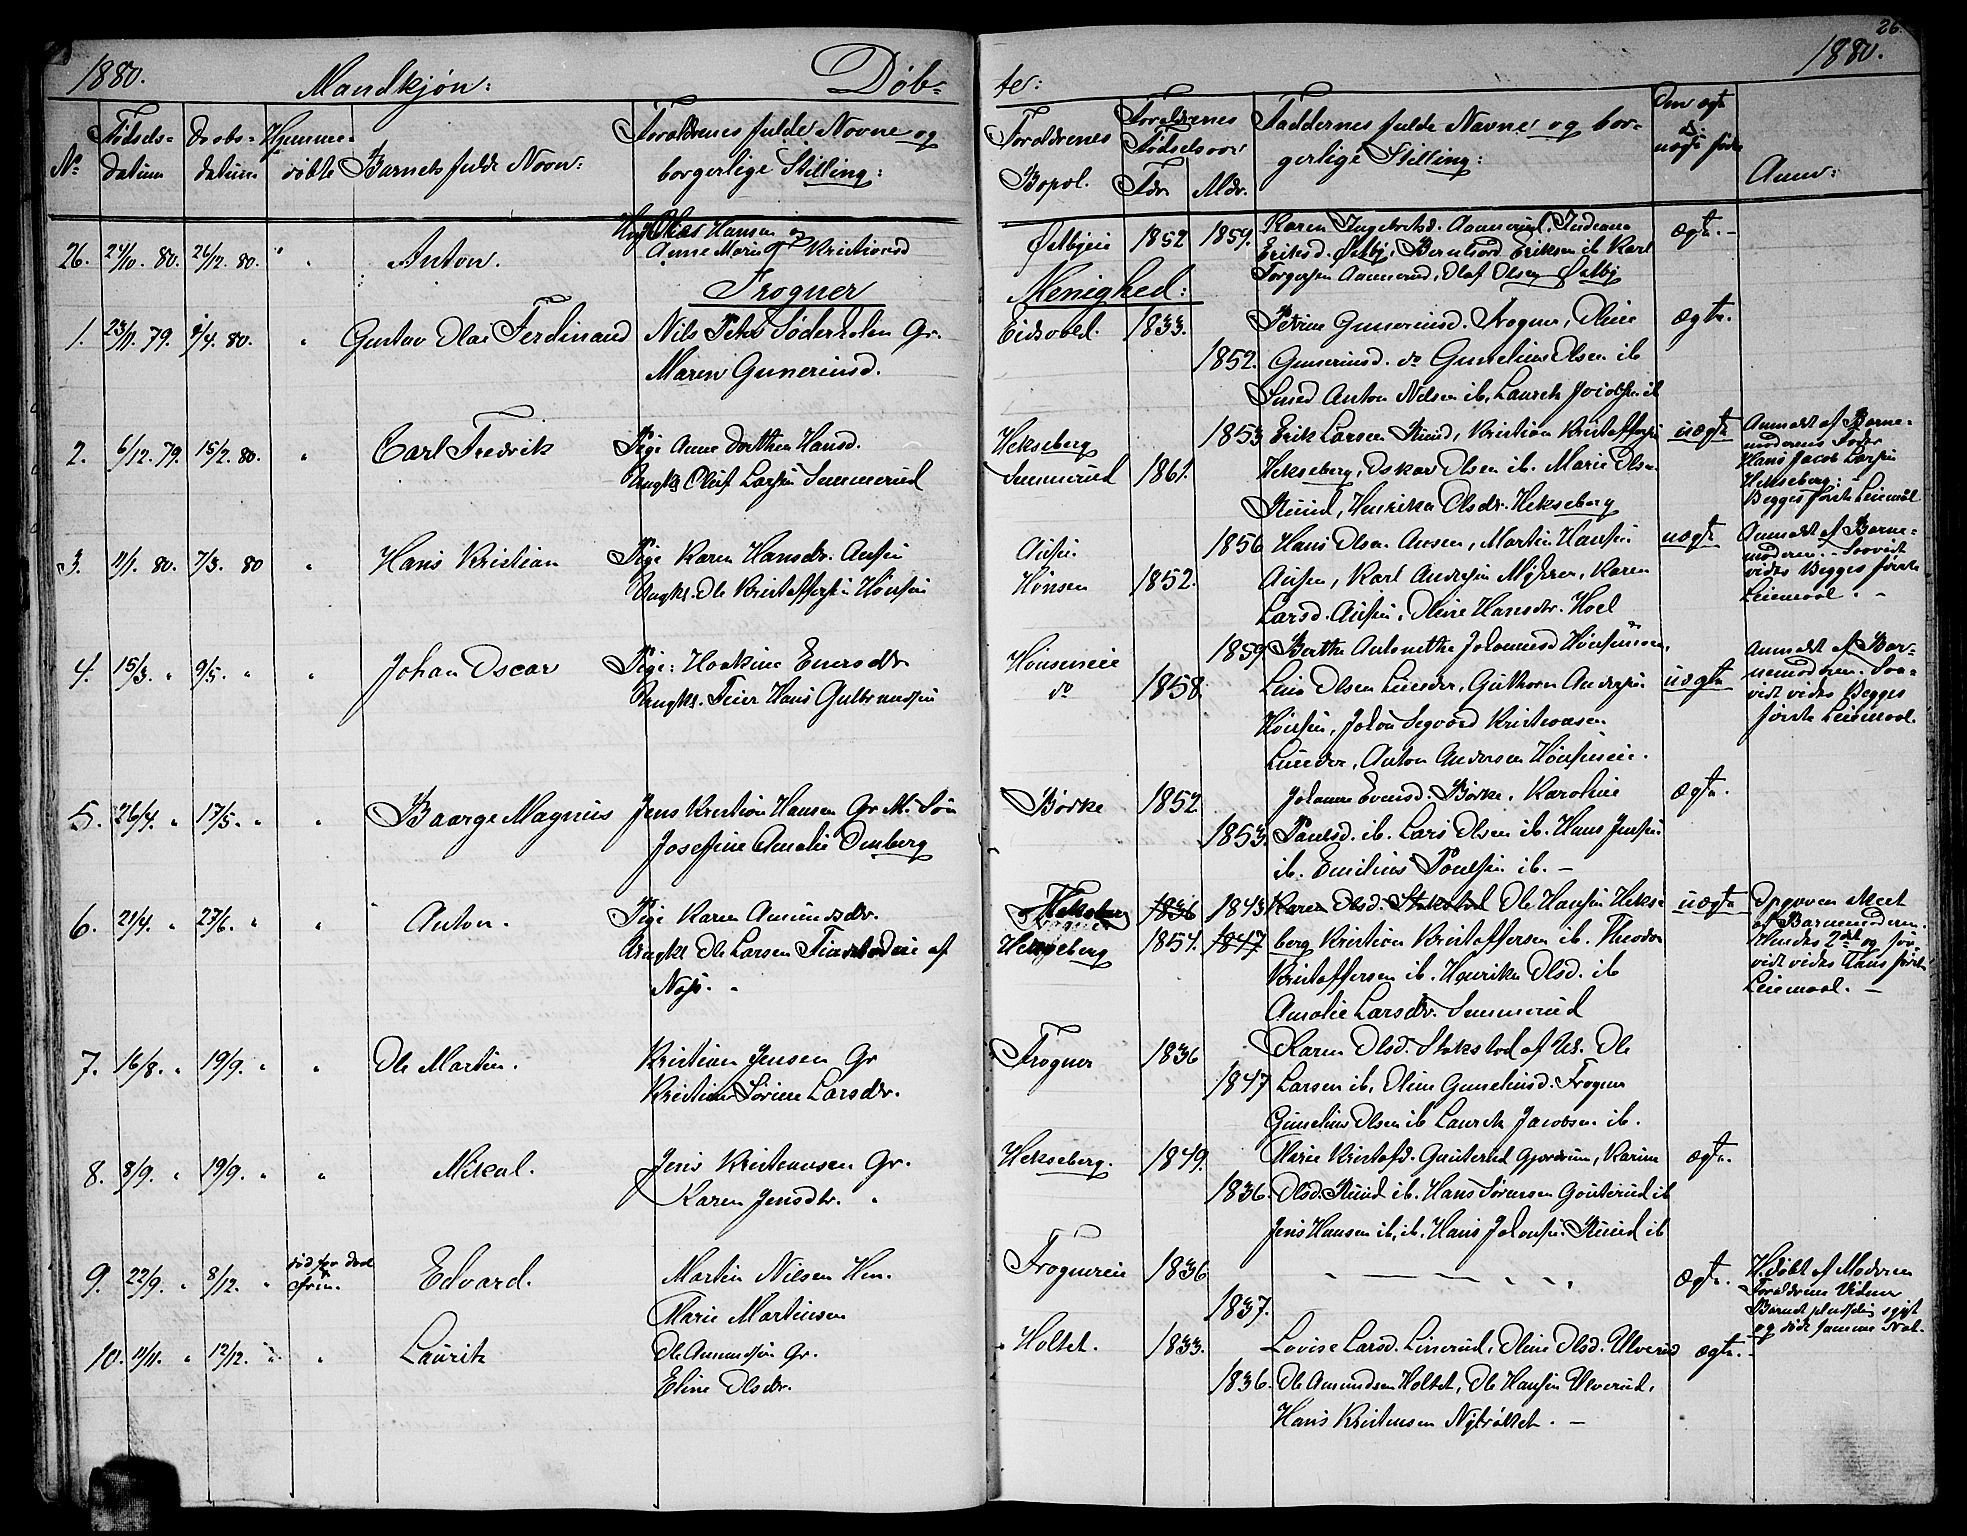 26.
1880. Mandkjøn: Døb-
te: 1880.
No Fødsels-datum Daabs-datum Hjemme-døbte Barnets fulde Navn: Forældrenes fulde Navne og borgerlige Stilling:
Forældrenes Bopæl. Forældrenes Fødselsaar Fdr. Mdr. Faddernes fulde Navne og borgerlige Stilling: Om ægte uægte født Anm:
26. 24/10. 80. 26/12. 80. " Anton. Olaf Hansen og
Anne Marie Kristiansd
Østbyeie 1852 1859. Karen Ingebretsd. Aamerud,
Eriksd. Østby, Bernhard Eriksen ib. Karl
Torgersen Aamerud, Olaf Olsen Østby
ægte. -
Frogner
Menighed:
1. 23/11. 79. 4/4. 80. " Gustav Olai Ferdinand Nils Söderholm Gr.
Maren Guneriusd.
Eidsvold. 1833.
1852.
Petrine Gunneriusd. Frogner, Oline
Gunneriusd. do Gunelius Olsen ib
Smed Anton Nilsen ib, Laurits ib
ægte.
2. 6/12. 79. 15/2. 80. " Carl Fredrik Pige Anne Dorthea Hansd.
Ungk. Oluf Larsen Semmerud
Hekseberg 1853
Semmerud 1861.
Erik Larsen Ruud, Kristian Kristoffersen
Hekseberg, Oskar Olsen ib. Marie Olsen
Ruud, Henrikke Olsdr. Hekseberg
uægte
Anmeldt af Barne-
moderens Fader
Hans Jacob Larsen
Hekseberg:
Begges første Leiemaal
3. 11/1. 80. 7/3. 80 " Hans Kristian Pige Karen Hansdr. Ausen
Ungkl. Ole Kristoffersen Hønsen
Ausen 1856
Hønsen 1852.
Hans Olsen Ausen, Martin Hansen
Ausen, Karl Andersen Myhrer, Karen
Larsd. Ausen, Oline Hansdr. Hoel
uægte
Anmeldt af Barne-
moderen. Saavidt
vides Begges første
Leiemaal. -
4. 15/3. " 9/5. " " Johan Oscar Pige: Haakine Eversdr
Ungkl. Hans Gulbrandsen
Hønseneie 1859
do 1858.
Berthe Antonette Johannesd
Olsen Linder, Guthorm Andersen
Hønsen, Johan Segvard Kristiansen
Linder, Anton Andersen Hønseneie.
uægte
Anmeldt af Bar-
nemoderen. Saa-
vidt vides Begges
første Leiemaal.
5. 26/4. " 17/5. " " Baarge Magnus Jens Kristian Hansen Gr.
Josefine Amalie Omberg
Børke 1852
1853.
Johanne Evensd. Børke, Karoline
Paulsd. ib. Lars Olsen ib. Hans Jensen
ib. Emilius Poulsen ib. -
ægte.
6. 21/4. " 27/6. " " Anton. Pige Karen Amundsdr.
Ungkl. Ole Larsen af
Næs. "
Hekseberg 1836 1843
Hexeberg 1854. 1847
Karen Olsd. Stokstad Ole Hansen Hekse-
berg Kristian Kristoffersen ib. Theodor
Kristoffersen ib. Henrikke Olsd. ib
Amalie Larsdr. Semmerud
uægte
Opgaven Meet
af Barnemoderen.
Hendes 2det og saa-
vidt vides Hans første
Leiemaal. -
7. 16/8. " 19/9. " " Ole Martin. Kristian Jensen Gr
Kristine Sørine Larsdr.
Frogner 1836
1847
Karen Olsd. Stokstad af Ole
Larsen ib, Oline Guneliusd. Frogner
Gunelius Olsen ib Laurits Jacobsen ib.
8. 8/9. " 19/9. " " Mikal. Jens Kristiansen Gr.
Karen Jensdtr. "
Hekseberg. 1849.
1836.
Marie Kristofd. Gjerdrum, Karine
Olsd. Ruud ib. Hans Sørensen ib
Jens Hansen ib. ib. Hans Johansen Ruud ib
ægte.
9. 22/9. " 8/12. " Edvard. Martin Nilsen Hm.
Marie Martinsen
Frognereie 1836
1837.
ægte.
Hj.døbt af Moderen
Forældrene Vidner
Barnet sygt
og døde samme Nat.
10. 11/11. " 12/12. " " Lauritz Ole Amundsen Gr.
Eline Olsdr.
Holtet. 1833.
1836.
Lovise Larsd. Linerud, Oline Olsd. Ulverud
Ole Amundsen Holtet, Ole Hansen Ulverud,
Hans Kristensen Nybrottet. -
ægte. -